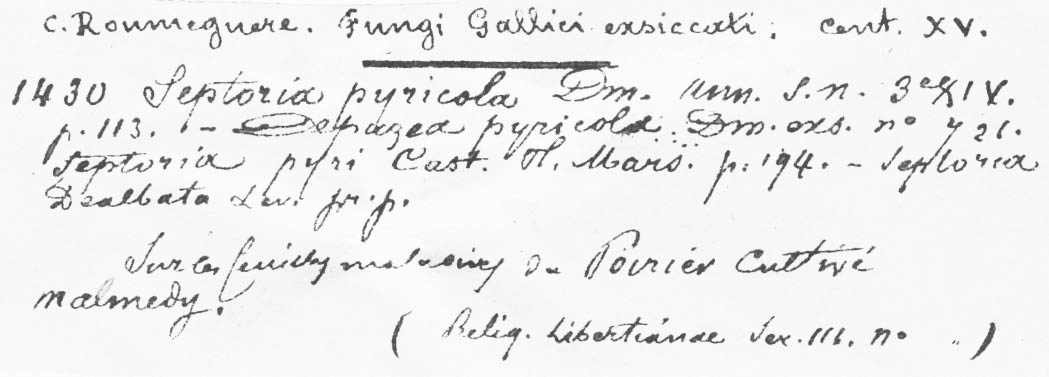 C. Roumeguere. Fungi Gallici exsiccati. Cent. XV.
1430 Septoria pyricola Dm. Ann. S. n. 3e XIV.
p. 113. - Depazea pyricola. Dm. exs. no 721.
Septoria pyri Cast. Pl. Mars. p. 194. - Septoria
Dealbata Lev. pr. p.
Sur les feuilles malades du Poirier Cultivé
Malmedy.
( Reliq. Libertianae Ser. III. no )